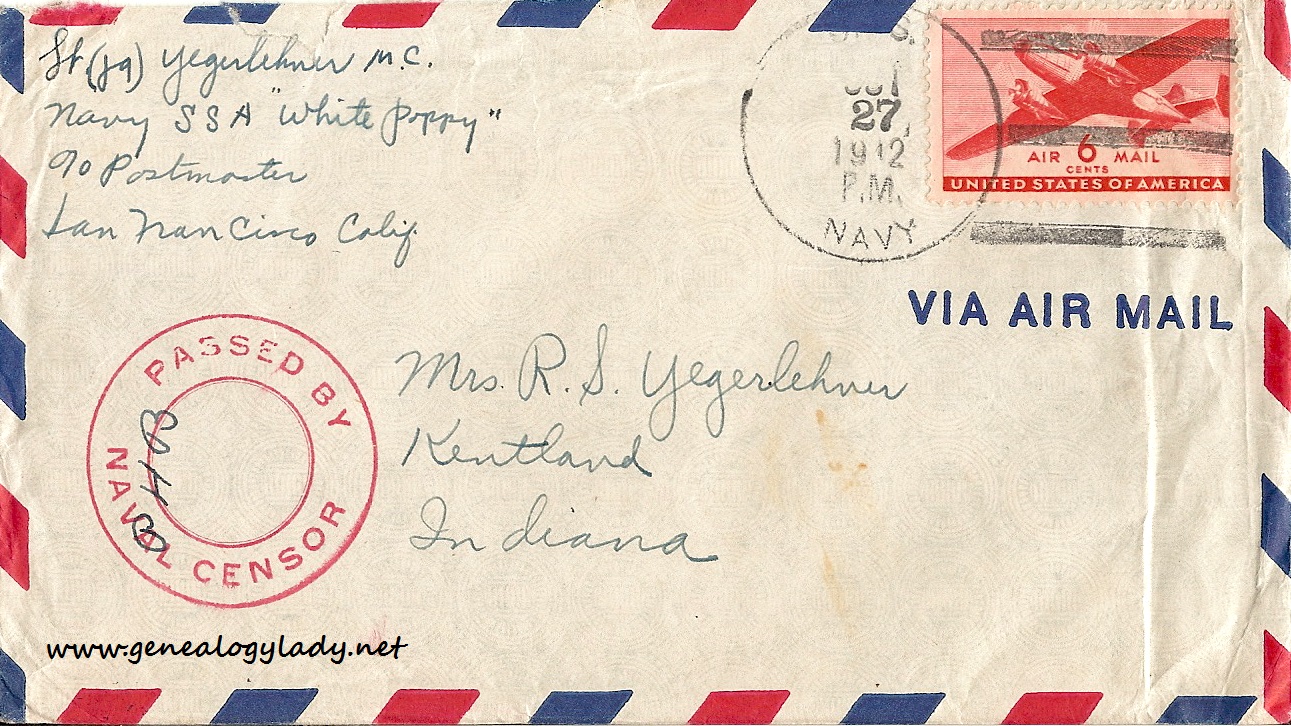 Lt (jg) Yegerlehner M.C.
Navy SSA "White Poppy"
℅ Postmaster
San Francisco Calif.
OCT
27
1942
P.M.
NAVY
AIR 6 MAIL
CENTS
UNITED STATES OF AMERICA
VIA AIR MAIL
Mrs. R. S. Yegerlehner
Kentland
Indiana
PASSED BY
NAVAL CENSOR
www.genealogylady.net